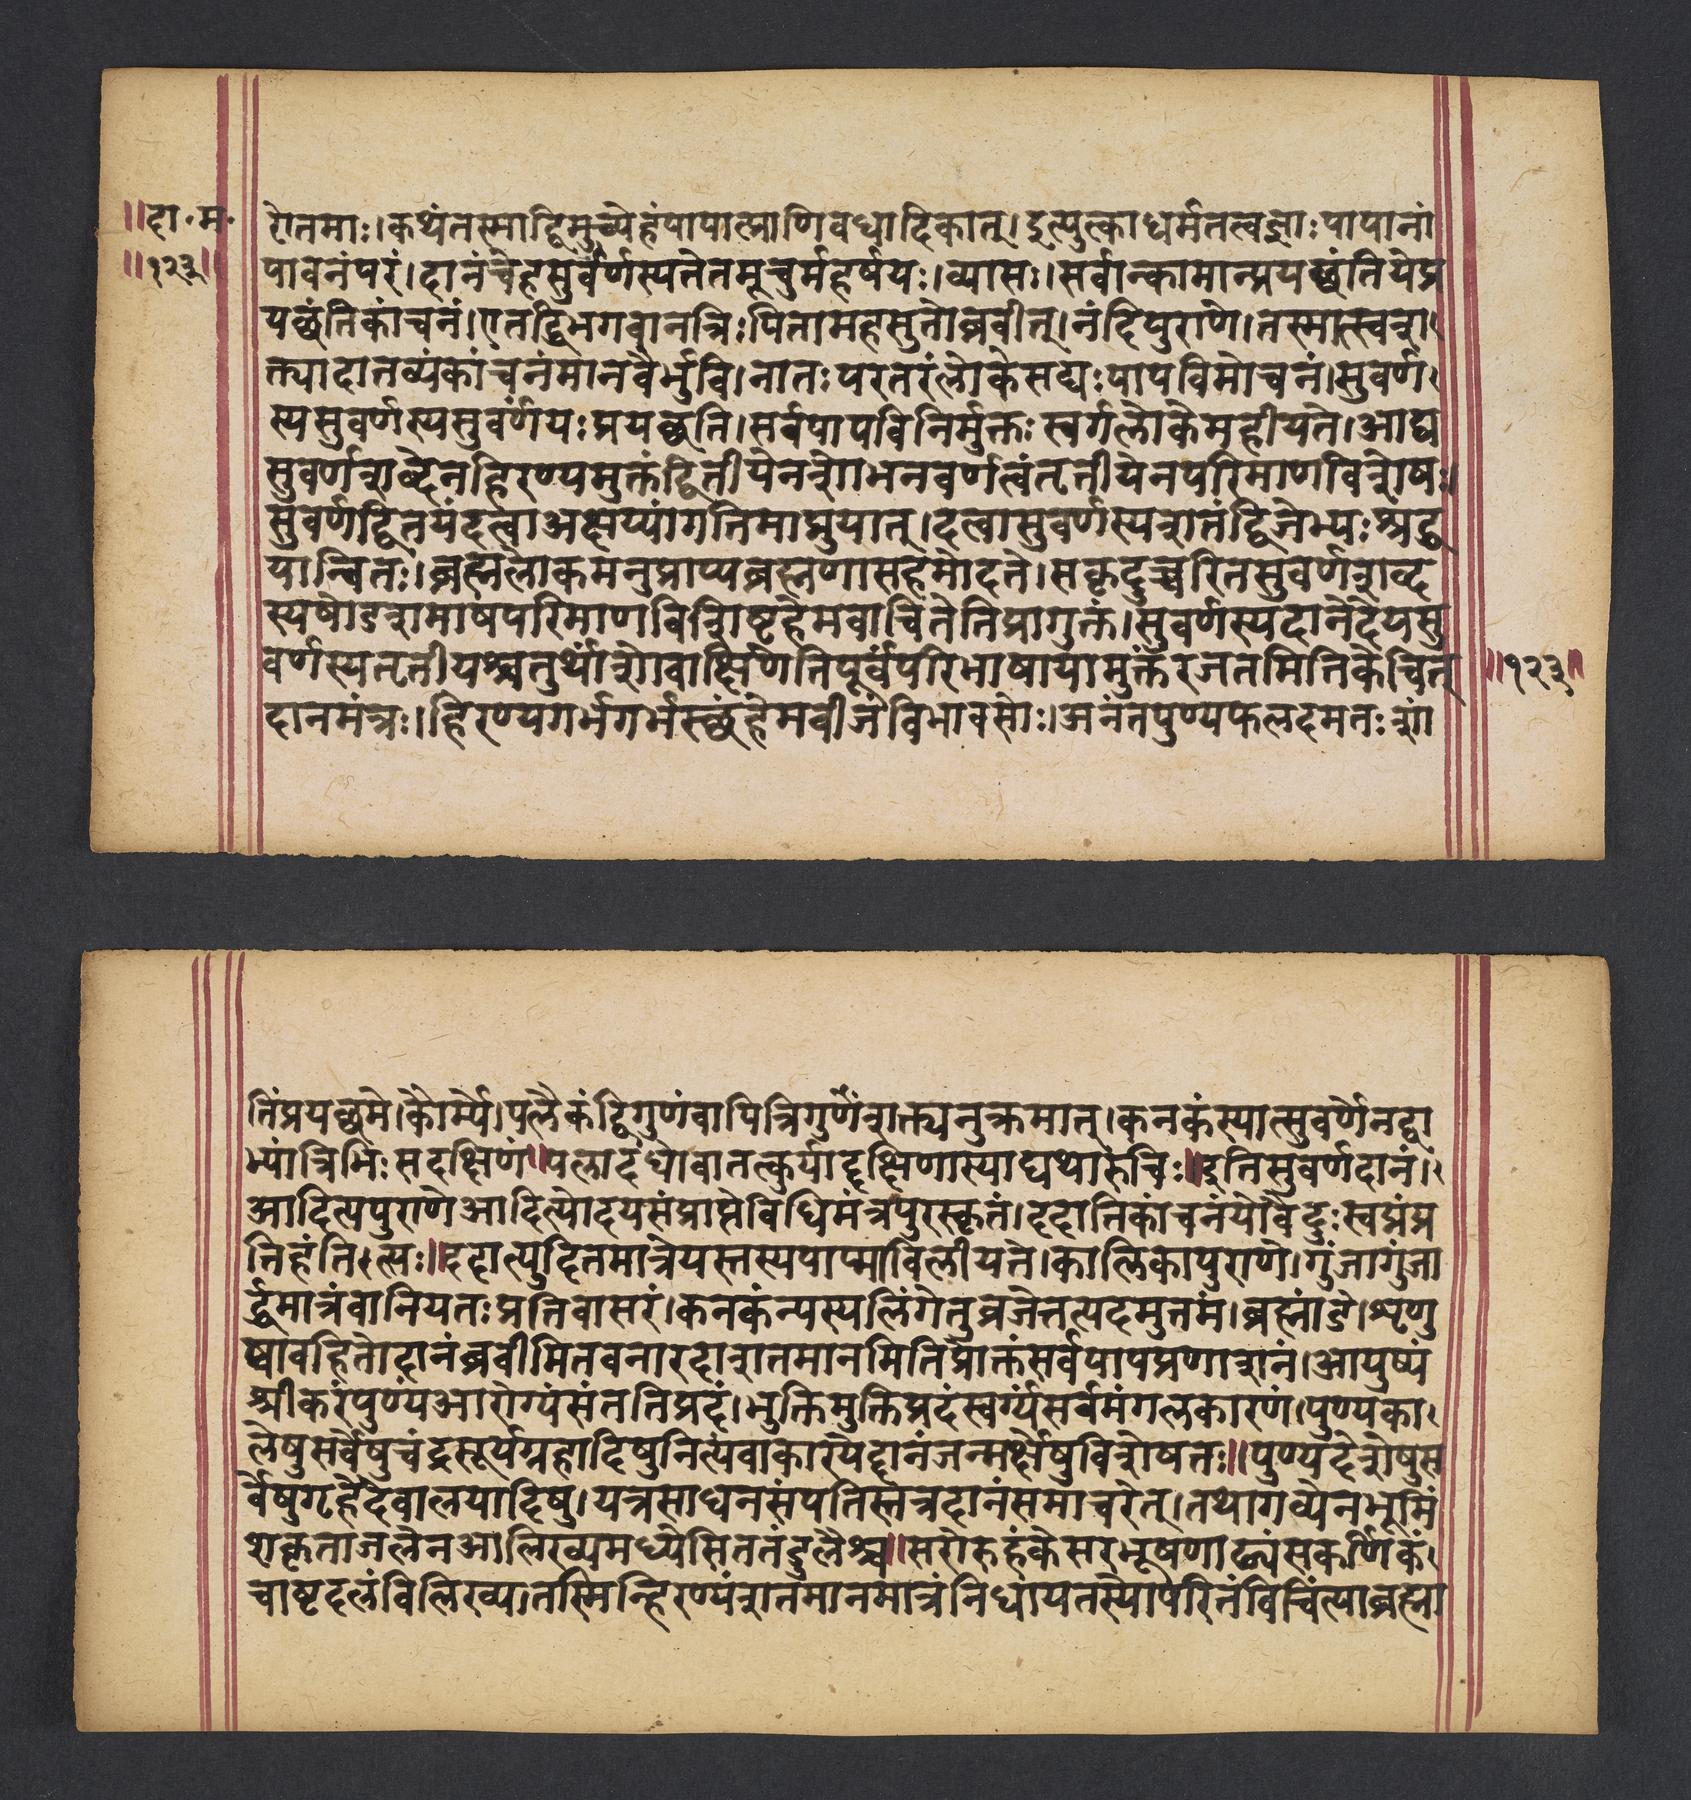 ॥दा॰म॰
॥१२३॥
रोतमाः।कथंतस्माद्विमुच्येहंपापात्प्राणिवधादिकात्।इत्युत्काधर्मतत्वज्ञाःपापानां
पावनंपरं।दानंचेहसुवर्णस्यतेतमूचुर्महर्षयः।व्यासः।सर्वान्कामान्प्रयछंतियेप्र
यछंतिकांचनं।एतद्धिभगवानत्रिःपितामहसुतोब्रवीत्।नंदिपुराणे।तस्मात्स्वशा
त्त्यादातव्यंकांचनंमानवैर्भुवि।नातःपरतरंलोकेसद्यःपापविमोचनं।सुवर्ण
स्यसुवर्णस्यसुवर्णंयःप्रयछति।सर्वपापविनिर्मुक्तःस्वर्गलोकेमहीयते।आद्य
सुवर्णशब्देनहिरण्यमुक्तंद्वितीयेनशोभनवर्णत्वंतृतीयेनपरिमाणविशेषः।
सुवर्णद्वितयंदत्वाअक्षय्यांगतिमाप्नुयात्।दत्वासुवर्णस्यशतंद्विजेभ्यःश्रद्ध
यान्वितः।ब्रह्मलोकमनुप्राप्यब्रह्मणासहमोदते।सकृदुच्चरितसुवर्णशब्द
स्यषोडशमाषपरिमाणविशिष्टहेमवाचितेतिप्रागुक्तं।सुवर्णस्यदानेदेयसु
वर्णस्यतृतीयश्चतुर्थांशोवादक्षिणेतिपूर्वंपरिभाषायामुक्तंरजतमितिकेचित्
॥१२३॥
दानमंत्रः।हिरण्यगर्भगर्भस्छंहेमबीजंविभावसोः।अनंतपुण्यफलदमतःशां
तिंप्रयछमे।कौर्म्ये।पलैकंद्विगुणंवापित्रिगुणंशक्त्यनुक्रमात्।कनकंस्यात्सुवर्णेनद्वा
भ्यांत्रिभिःसदक्षिणं॥पलादधोवातत्कुर्याद्दक्षिणास्याद्यथारुचिः॥इतिसुवर्णदानं।
आदित्यपुराणेआदित्योदयसंप्राप्तेविधिमंत्रपुरस्कृतं।ददातिकांचनंयोवैदुःस्वप्नंप्र
तिहंतिसः॥ददात्युदितमात्रेयस्तस्यपाप्माविलीयते।कालिकापुराणे।गुंजागुंजा
र्द्धमात्रंवानियतःप्रतिवासरं।कनकंन्यस्यलिंगेतुव्रजेत्तत्पदमुत्तमं।ब्रह्मांडे।शृणु
ष्वावहितोदानंब्रवीमितवनारदाशतमानमितिप्रोक्तंसर्वपापप्रणाशनं।आयुष्यं
श्रीकरंपुण्यंआरोग्यंसंततिप्रदं।भुक्तिमुक्तिप्रदंस्वर्ग्यंसर्वमंगलकारणं।पुण्यका
लेषुसर्वेषुचंद्रसूर्यग्रहादिषुनित्यंवाकारयेद्दानंजन्मर्क्षेषुविशेषतः॥पुण्यदेशेषुस
र्वेषुगृहेदेवालयादिषु।यत्रसाधनसंपतिस्तत्रदानंसमाचरेत्।तथागव्येनभूमिं
शकृताजलेनआलिख्यमध्येसिततंडुलैश्च॥सरोरुहंकेसरभूषणाढ्यंसकर्णिकं
चाष्टदलंविलिख्य।तस्मिन्हिरण्यंशतमानमात्रंनिधायतस्योपरितंविचिंत्याब्रह्मा